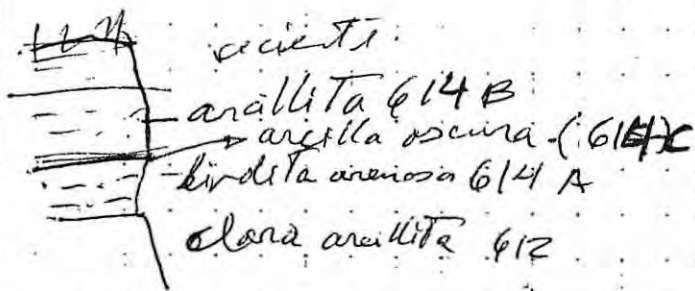 reciente.
arcillita 614 B
arcilla oscura (614)C
arenosa 614 A
clara arcillita 612